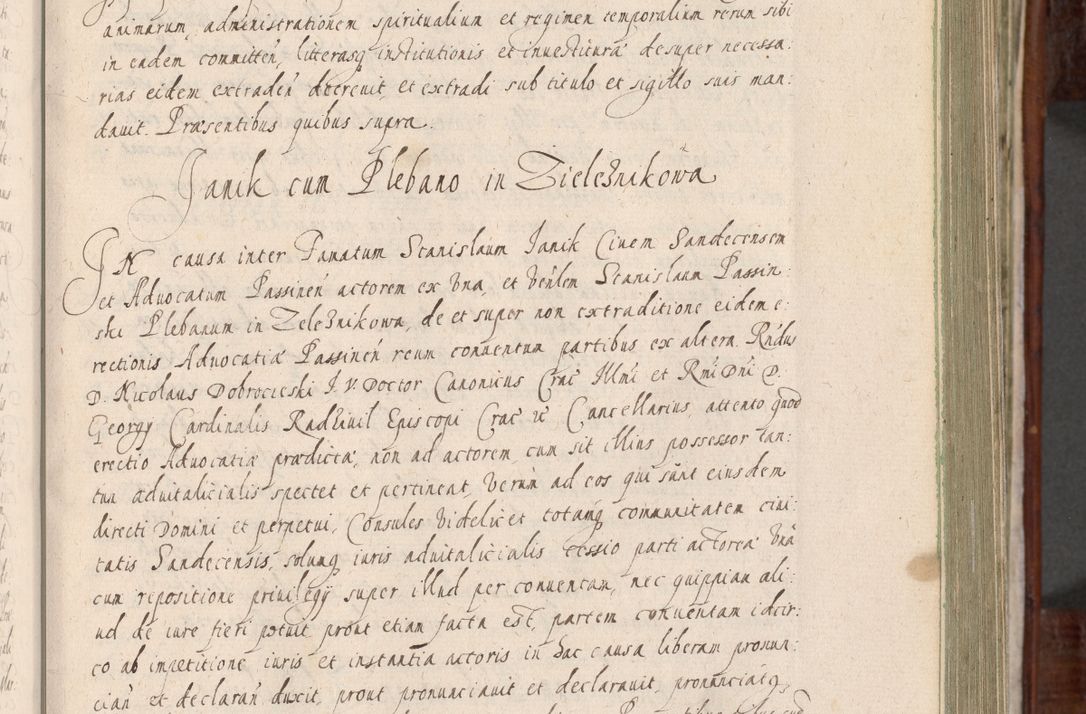 animarum, administrationem spiritualium et regimen temporalium rerum sibi
in eadem committeń, litterasq institutionis et inuestitura desuper necessa:
rias eidem extradeń decreuit, et extradi sub titulo et sigillo suis man:
dauit. Præsentibus quibus supra.
Janik cum Plebano in Zieleznikowa
IN causa inter Famatum Stanislaum Janik Ciuem Sandecensem
et Aduocatum Passineń actorem ex Vna, et Veńlem Stanislaum Passin:
ski Plebanum in Zeleznikowa, de et super non extraditione eidem e:
rectionis Aduocatiæ Passineń reum conuentum partibus ex altera. Rńdus
D. Nicolaus Dobrocieski I. V. Doctor Canonicus Crac Illmi et Rmi Dni D.
Georgy Cardinalis Radziuil Episcopi Crac Cancellarius, attento quod
erectio Aduocatiæ prædictæ, non ad actorem, cum sit illius possessor tan:
tum aduitalicialis spectet et pertineat, Verum ad eos qui sunt eiusdem
directi Domini et perpetui, Consules Videlicet totamq communitatem ciui:
tatis Sandecensis, solumq iuris aduitalicialis cessio parti actorea Vna
cum repositione priuilegy super illud per conuentam, nec quippiam ali:
ud de iure fieri potuit prout etiam facta est, partem conuentam idcir:
co ab impetitione iuris et instantia actoris in hac causa liberam pronun:
cian et declaran duxit, prout pronunciauit et declarauit, pronunciatq